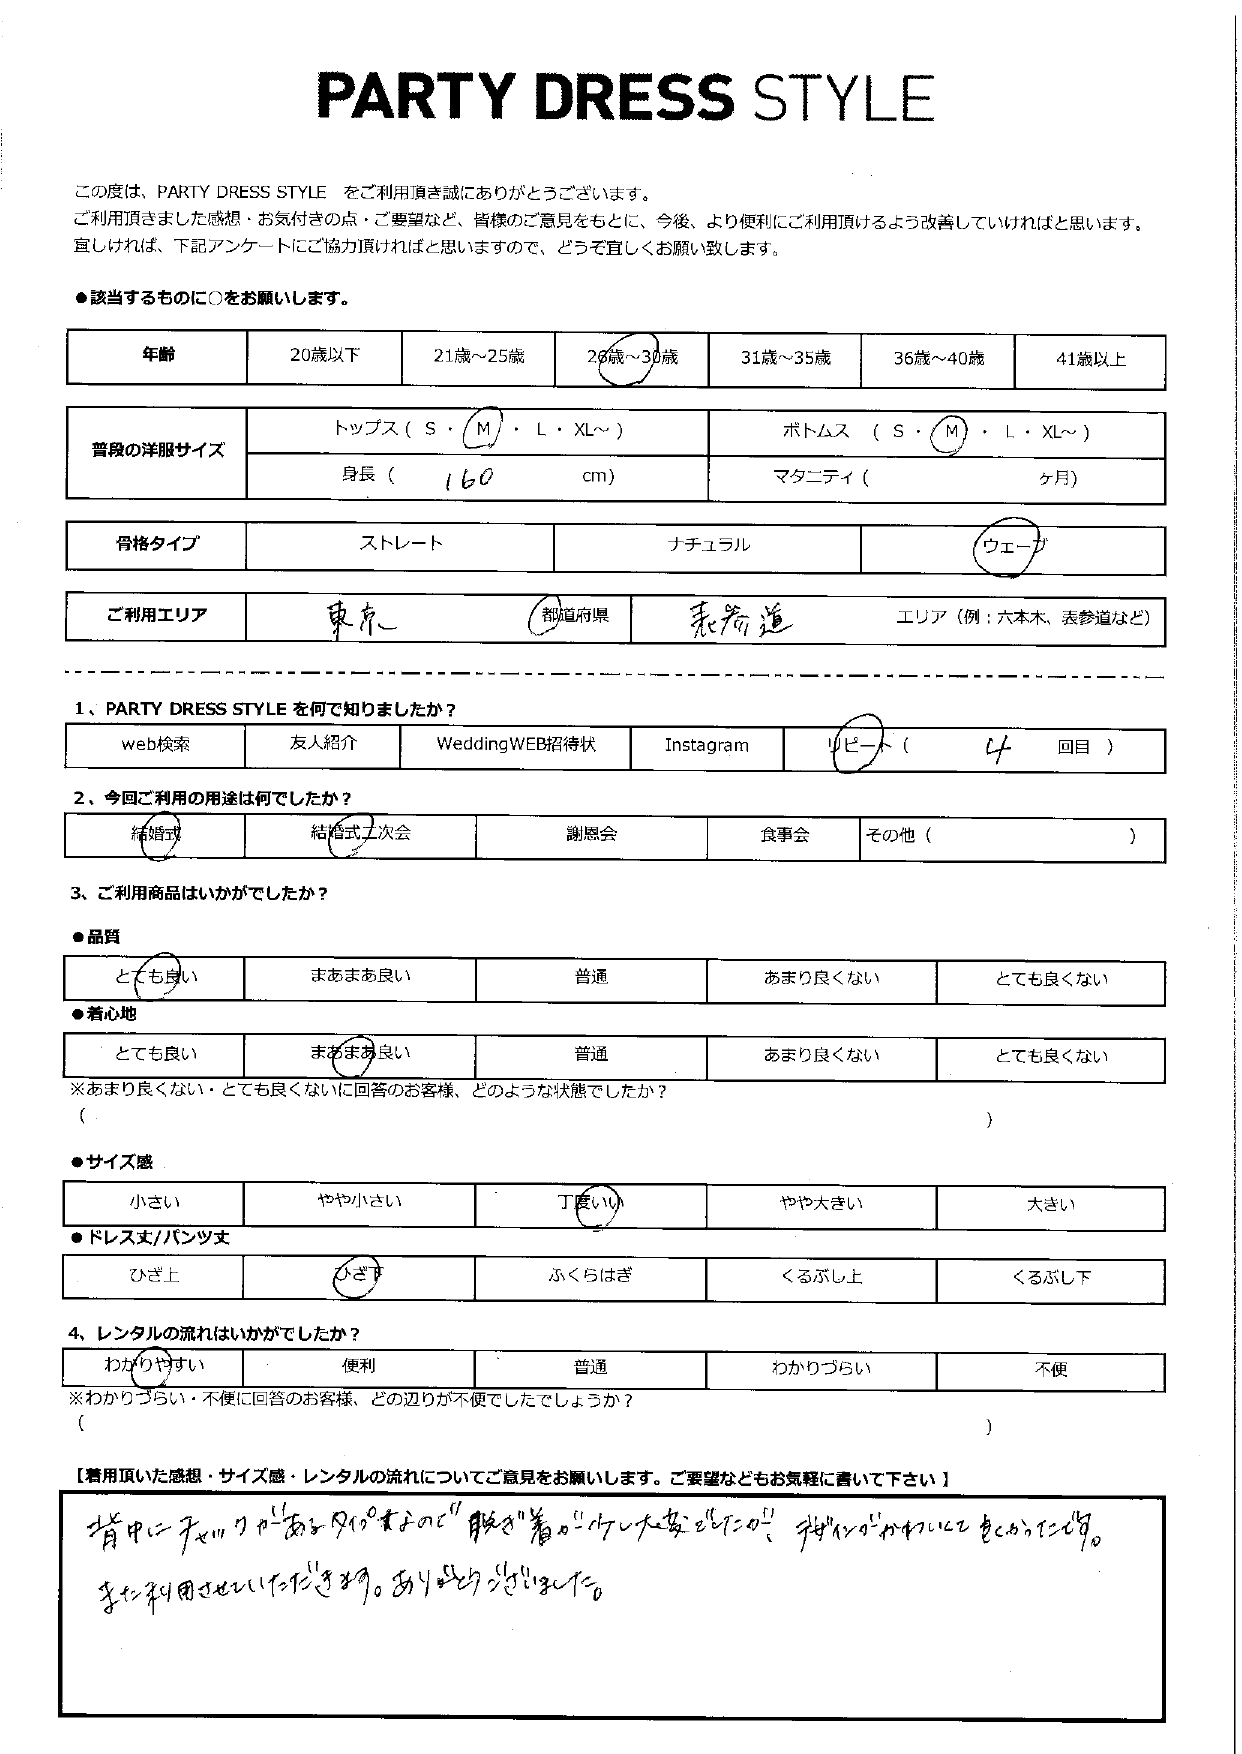 PARTY DRESS STYLE
この度は、PARTY DRESS STYLE をご利用頂き誠にありがとうございます。
ご利用頂きました感想・お気付きの点・ご要望など、皆様のご意見をもとに、今後、より便利にご利用頂けるよう改善していければと思います。
宜しければ、下記アンケートにご協力頂ければと思いますので、どうぞ宜しくお願い致します。
●該当するものに○をお願いします。
年齢 20歳以下 21歳～25歳 26歳～30歳 31歳～35歳 36歳～40歳 41歳以上
普段の洋服サイズ トップス ( S ・ M ・ L ・ XL～ ) ボトムス ( S ・ M ・ L ・ XL～ )
身長 ( 160 cm) マタニティ ( ヶ月)
骨格タイプ ストレート ナチュラル ウェーブ
ご利用エリア 東京 都道府県 表参道 エリア（例：六本木、表参道など）
1、PARTY DRESS STYLE を何で知りましたか？
web検索 友人紹介 WeddingWEB招待状 Instagram リピート ( 4 回目 )
2、今回ご利用の用途は何でしたか？
結婚式 結婚式二次会 謝恩会 食事会 その他 ( )
3、ご利用商品はいかがでしたか？
●品質
とても良い まあまあ良い 普通 あまり良くない とても良くない
●着心地
とても良い まあまあ良い 普通 あまり良くない とても良くない
※あまり良くない・とても良くないに回答のお客様、どのような状態でしたか？
( )
●サイズ感
小さい やや小さい 丁度いい やや大きい 大きい
●ドレス丈/パンツ丈
ひざ上 ひざ下 ふくらはぎ くるぶし上 くるぶし下
4、レンタルの流れはいかがでしたか？
わかりやすい 便利 普通 わかりづらい 不便
※わかりづらい・不便に回答のお客様、どの辺りが不便でしたでしょうか？
( )
【着用頂いた感想・サイズ感・レンタルの流れについてご意見をお願いします。ご要望などもお気軽に書いて下さい】
背中にチャックがあるタイプすよので脱ぎ着が少し大変でしたが、デザインがかわいくて良くかったです。
また利用させていただきます。ありがとうございました。